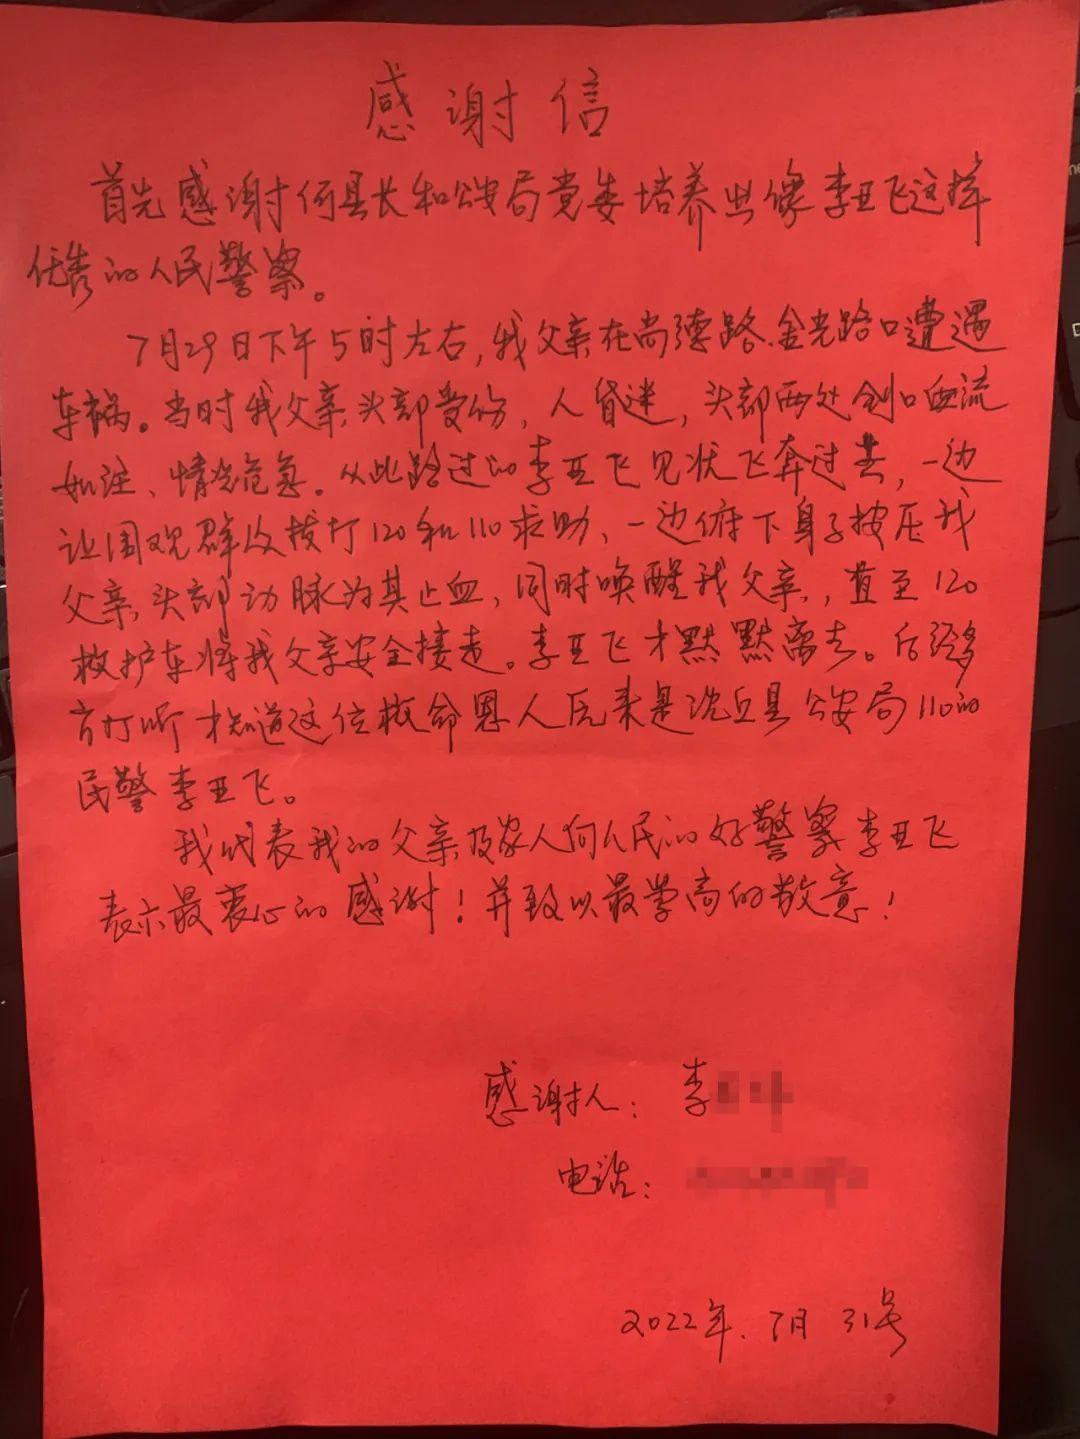 感谢信
首先感谢何县长和公安局党委培养出像李亚飞这样
优秀的人民警察。
7月29日下午5时左右,我父亲在尚德路.金光路口遭遇
车祸。当时我父亲头部受伤,人昏迷,头部两处创口血流
如注、情况危急。从此路过的李亚飞见状飞奔过去,一边
让围观群众拨打120和110求助、一边俯下身子按压我
父亲头部动脉为其止血、同时唤醒我父亲,直至120
救护车将我父亲安全接走。李亚飞才默默离去。后经多
方打听才知道这位救命恩人原来是沈丘县公安局110的
民警李亚飞。
我代表我的父亲及家人向人民的好警察李亚飞
表示最衷心的感谢!并致以最崇高的敬意!
感谢人:李
电话:
2022年.7月31号